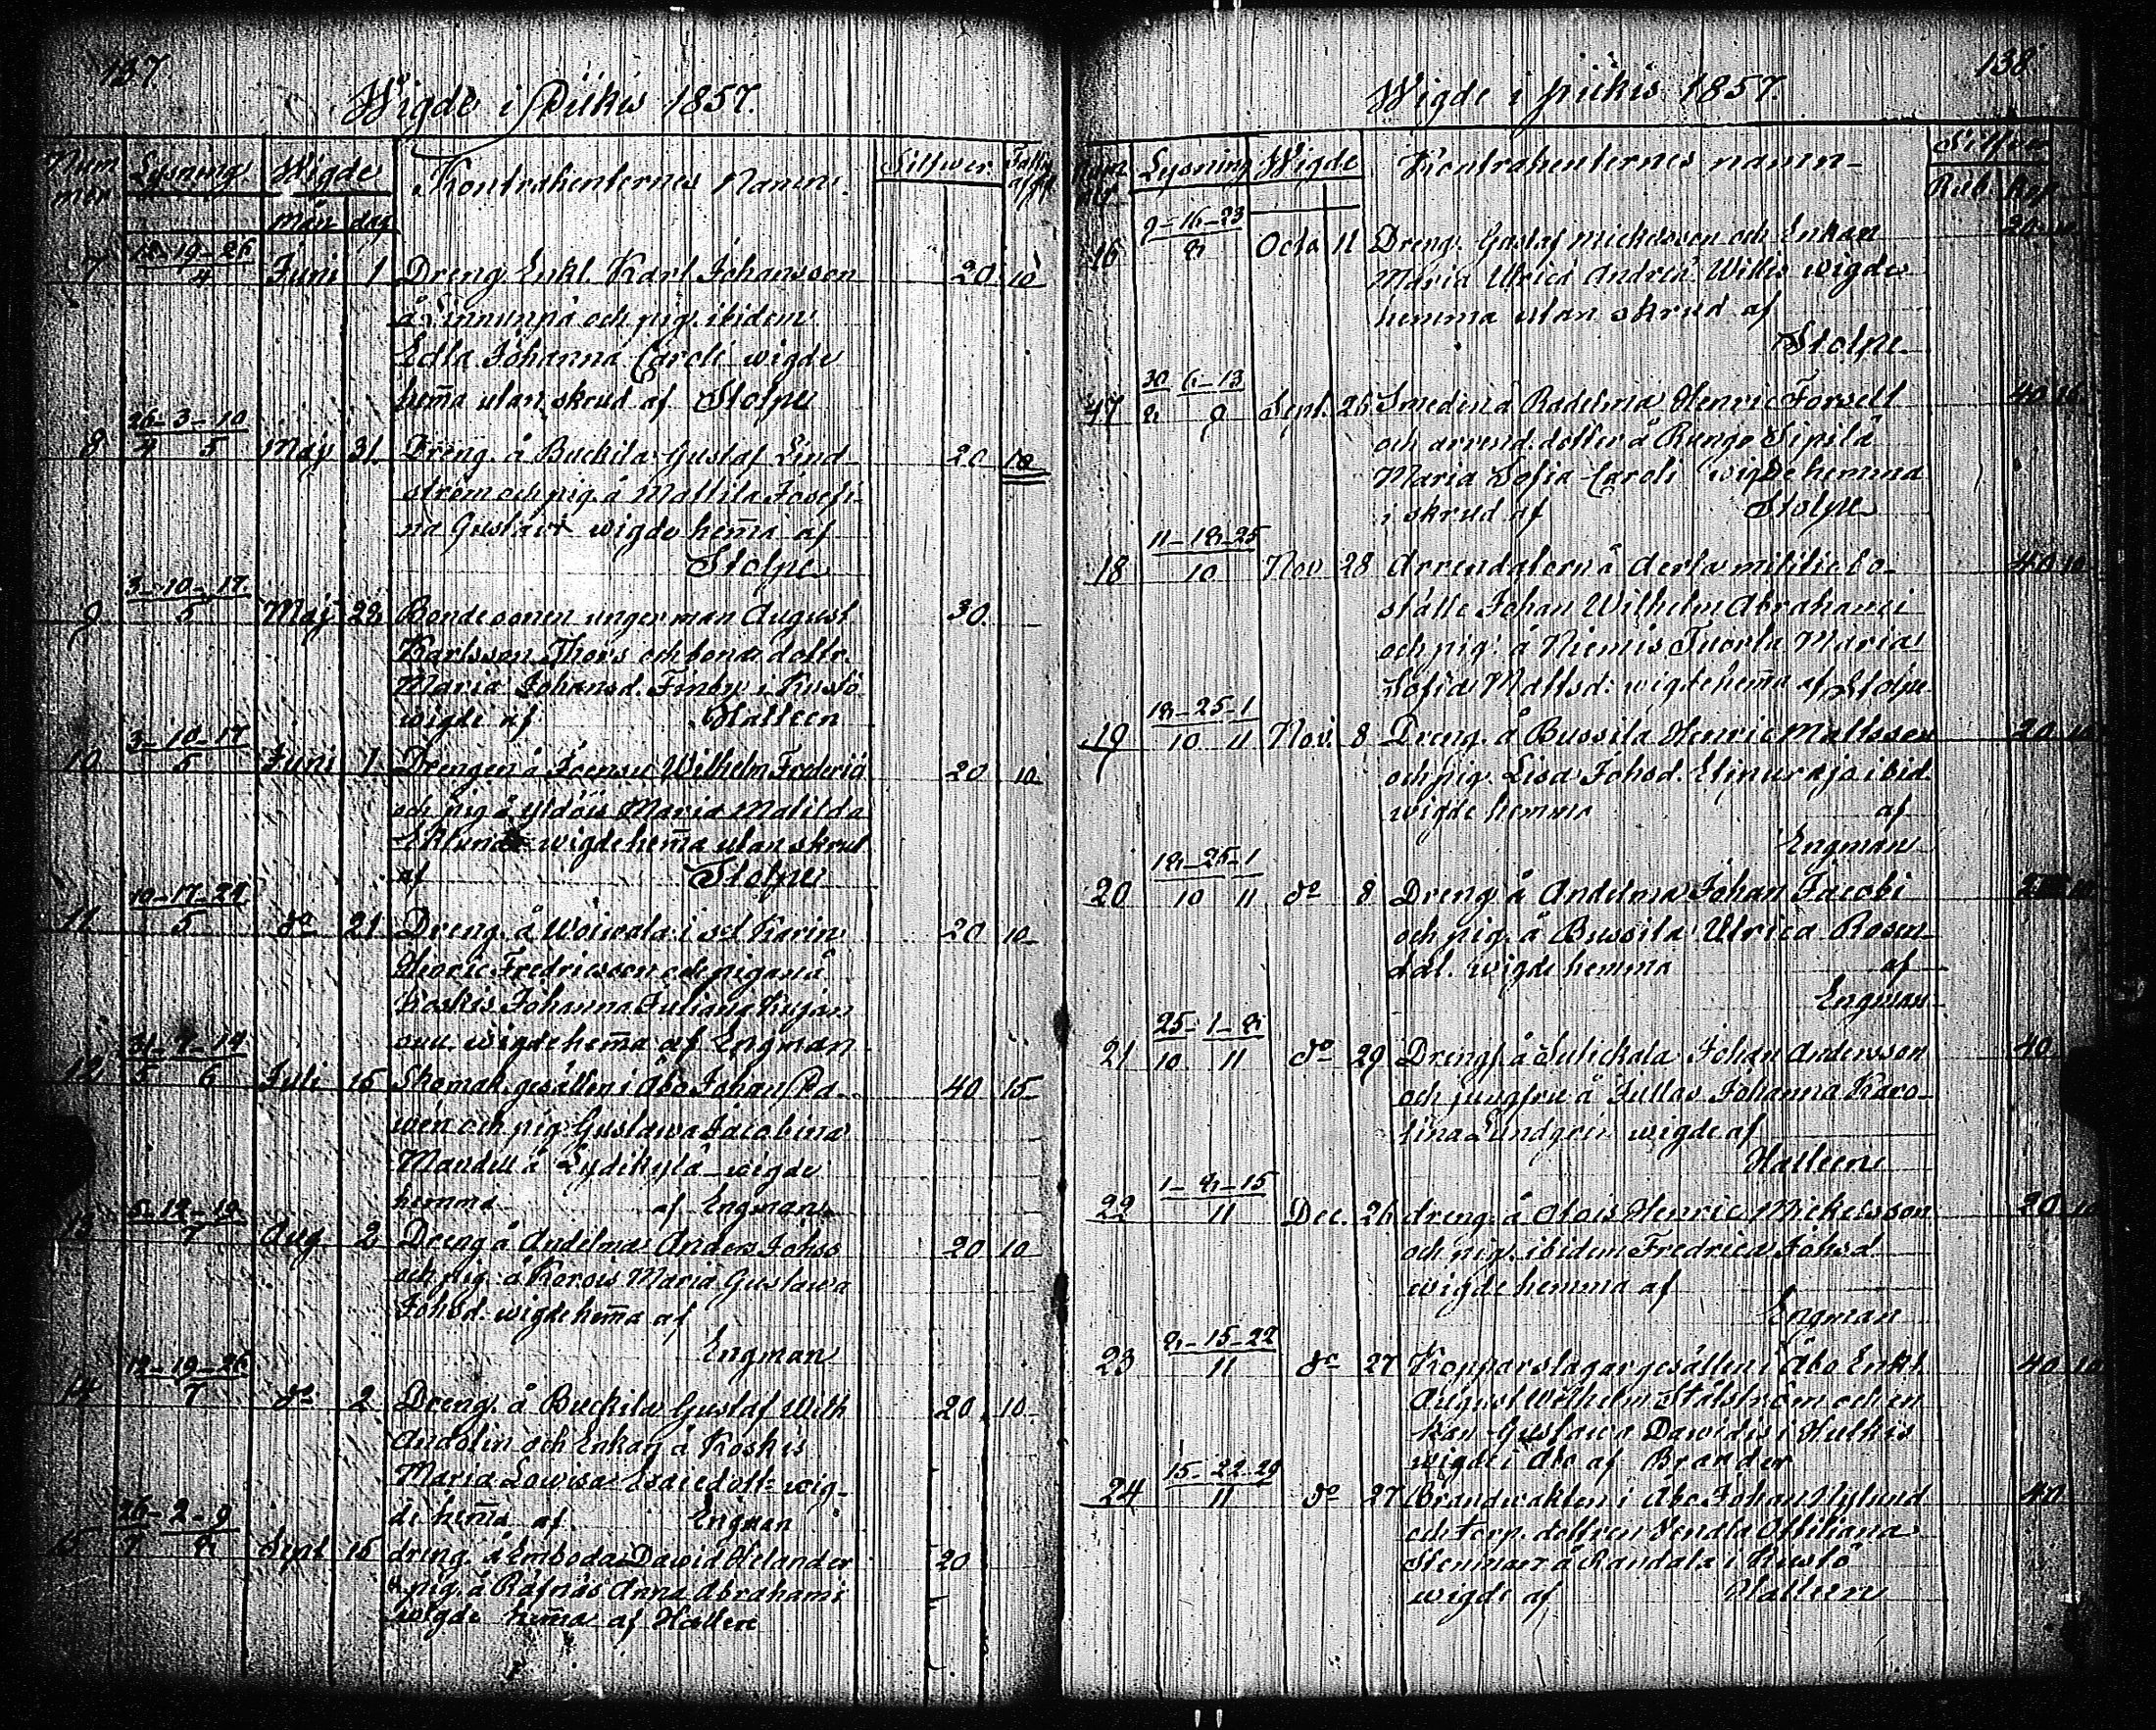 137.
Wigde i Piikis 1857.
Num mer Lysning Wigde Kontrahenternes Namn. Silfwer
Mån dag
7 12-19-26/4 Juni 1 Dreng Enkl. Karl Johansson 20 10
å och pig. ibidem
Edla Johanna Caroli wigde
hem̄a utan skrud af Stolpe
8 26-3-10/4 5 Maj 31. Dreng. å Buckila Gustaf Lind- 20 10
ström och pig. å Mattila Josefi-
na Gustavi wigde hem̄a af
Stolpe
9 3-10-17/5 Maj 28 Bondesonen unger man August 30.
Karlsson Thors och bonde dottr.
Maria Johansd. Finby i Kustö
wigde af Halleen
10 3-10-17/5 Juni 1 Drengen å Wilhelm Frederici 20 10
och pig å Yldöis Maria Matilda
Eklund wigde hem̄a utan skrud
af Stolpe
11 10-17-24/5 do 21 Dreng. å i Karin 20 10
Henric Fredricsson och pigan å
Koskis Johanna Juliana
wigde hem̄a af Engman
12 31-7-14/5 6 Juli 15 Skomak. gesällen i Åbo Johan 40 15
och pig Gustawa Jacobina
Mandell å Lydikylä wigde
hemma af Engman
13 5-12-19/7 Aug 2 Dreng å Andelma Anders Johss 20 10
och pig. å Karois Maria Gustawa
Johsd. wigde hem̄a af
Engman
14 12-19-26/7 do 2 Dreng. å Buckila Gustaf Wilh 20 10
Andolin och Enkan å Koskis
Maria Lowisa Esaiedott: wig-
de hem̄a af Engman
15 26-2-9/7 8 Sept 15 dreng. å Emboda Dawid Helander 20
pig. å Räfnäs Anna Abrahams
wigde hem̄a af Halleen
138
Wigde i piikis 1857.
Num mer Lysning Wigde Kontrahenternes namn- Silfver
Rub. Kop
16 9-16-23/8 Octo 11 Dreng. Gustaf Mickelsson och Enkan 20 10
Maria Ulrica Andreæ Willis wigde
hemma utan skrud af
Stolpe
17 30 6-13/8 9 Sept. 26 Smeden å Radelma Henric Forsell 40
och arrend. dotter å Runge Sipilä
Maria Sofia Caroli wigde hemma
i skrud af Stolpe
18 11-18-25/10 Nov 28 Arrendatorn å Aerla militiebo- 40 10
ställe Johan Wilhelm Abrahami
och pig. å Niemis Tuorla Maria
Sofia Mattsd: wigde hem̄a af Stolpe
19 18-25-1/10 11 Nov. 8 Dreng. å Bussila Henric Mattsson 20 10
och pig. Lisa Johsd. ibid
wigde hemma af
Engman
20 18-25-1/10 11 do 8 Dreng å Andelma Johan Jacobi
och pig. å Bussila Ulrica Rosen-
dal. wigde hemma af
Engman
21 25-1-8/10 11 do 29 Dreng å Johan Andersson 40
och jungfru å Jullas Johanna Karo-
lina Lundgren wigde af
Halleen
22 1-8-15/11 Dec. 26 dreng. å Alois Henric Mickelsson 20 10
och pig. ibidem Fredrica Johsd
wigde hemma af
Engman
23 8-15-22/11 do 27 Kopparslagargesällen i Åbo Enkl. 40 10
August Wilhelm Stålström och en
kan Gustawa Dawidis i Hulkis
wigde i Åbo af Brander
24 15-22-29/11 do 27 Brandwakten i Åbo Johan Nylund 40
och torp. dottren Wendla Ottiliana
å Randala i Kustö
wigde af Halleen